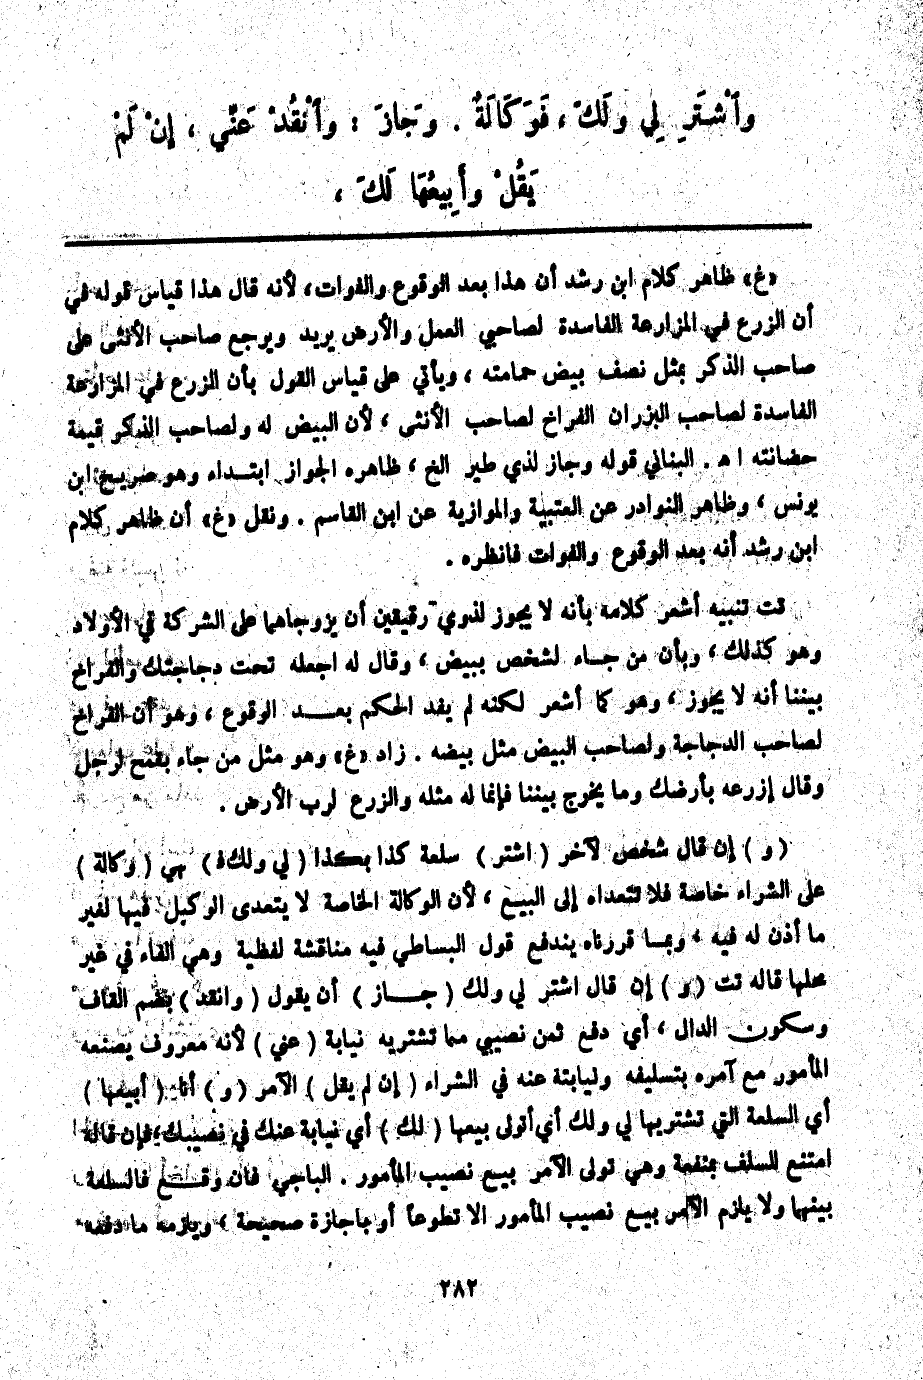 وَٱشْتَرِ لِي ولَكَ ، فَوَكَالَةٌ . وجَازَ : وٱنْقُدْ عَنِّي ، إنْ لَمْ
يَقُلْ وأَبِيعُهَا لَكَ ،
«غ» ظاهر كلام ابن رشد أن هذا بعد الوقوع والفوات، لأنه قال هذا قياس قوله في
أن الزرع في المزارعة الفاسدة لصاحبي العمل والأرض يريد ويرجع صاحب الأنثى على
صاحب الذكر بمثل نصف بيض حمامته ، ويأتي على قياس القول بأن الزرع في المزارعة
الفاسدة لصاحب البزران الفراخ لصاحب الأنثى ، لأن البيض له ولصاحب الذكر قيمة
حضانته ا ه . البناني قوله وجاز لذي طير الخ ، ظاهره الجواز ابتـداء وهو صريح ابن
يونس ، وظاهر النوادر عن العتبية والموازية عن ابن القاسم . ونقل «غ» أن ظاهر كلام
ابن رشد أنه بعد الوقوع والفوات فانظره .
تت تنبيه أشعر كلامه بأنه لا يجوز لذوي رقيقين أن يزوجاهما على الشركة في الأولاد
وهو كذلك ، وبأن من جـاء لشخص ببيض ، وقال له اجعله تحت دجاجتك والفراخ
بيننا أنه لا يجوز ، وهو كما أشعر لكنه لم يفد الحكم بعـــد الوقوع ، وهو أن الفراخ
لصاحب الدجاجة ولصاحب البيض مثل بيضه . زاد «غ» وهو مثل من جاء بقمح لرجل
وقال إزرعه بأرضك وما يخرج بيننا فإنما له مثله والزرع لرب الأرض .
( و ) إن قال شخص لآخر ( اشتر ) سلعة كذا بكذا ( لي ولك فـ ) هي ( وكالة )
على الشراء خاصة فلا تتعداه إلى البيـع ، لأن الوكالة الخاصة لا يتعدى الوكيل فيها لغير
ما أذن له فيه ، وبمـا قررناه يندفع قول البساطي فيه مناقشة لفظية وهي الفاء في غير
محلها قاله تت ( و ) إن قال اشتر لي ولك ( جـــاز ) أن يقول ( وانقد ) بضم القاف
وسكون الدال ، أي دفع ثمن نصيبي مما تشتريه نيابة ( عني ) لأنه معروف يصنعه
المأمور مع آمره بتسليفه ولنيابتة عنه في الشراء ( إن لم يقل ) الآمر ( و ) أنا ( أبيعها )
أي السلعة التي تشتريها لي ولك أي أتولى بيعها ( لك ) أي نيابة عنك في نصيبك، فإن قاله
امتنع للسلف بمنفعة وهي تولى الآمر بيـع نصيب المأمور . الباجي فان وقـــع فالسلعة
بينهما ولا يلزم الآمر بيـع نصيب المأمور الا تطوعاً أو باجازة صحيحة ، ويلزمه ما دفعه
٢٨٢